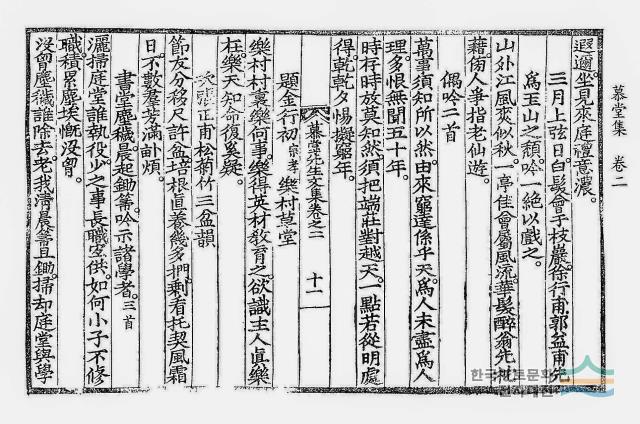 慕堂集 卷二
遐邇坐見來庭禮意濃。
三月上弦日白髮會于枝巖徐行甫郭益甫先
為玉山之頹吟一絶以戲之。
山外江風爽似秋一亭佳會屬風流華髮醉翁先被
藉傍人爭指老仙遊。
偶吟二首
萬事須知所以然由來窮達係乎天為人未盡為人
理多恨無聞五十年。
時存時放莫知然須把端莊對越天一點若從明處
得乾乾夕惕擬窮年。
題金行初宗孝樂村草堂
慕堂先生文集卷之二 十一
樂村村裏樂何事樂得英材敎育之欲識主人眞樂
在樂天知命復奚疑。
次張正甫松菊竹三盆韻
節友分移尺許盆培根直養幾多捫剩看托契風霜
日不數羣芳滿訃煩。
書堂塵穢晨起鋤箒吟示諸學者三首
灑掃庭堂誰執役少之事長職宜供如何小子不修
職積累塵埃慨沒曾。
沒曾塵穢誰除去老我淸晨箒且鋤掃却庭堂與學
한국국토문화
전자대전